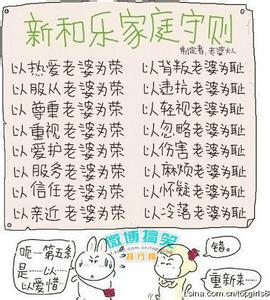 新和乐家庭守则
制定者:老婆大人
以热爱老婆为荣 以背叛老婆为耻
以服从老婆为荣 以违抗老婆为耻
以尊重老婆为荣 以轻视老婆为耻
以重视老婆为荣 以忽略老婆为耻
以爱护老婆为荣 以伤害老婆为耻
以服务老婆为荣 以麻烦老婆为耻
以信任老婆为荣 以怀疑老婆为耻
以亲近老婆为荣 以冷落老婆为耻
微博搞笑
排行榜
呃…第五条
是……以……
以爱惜…
错。
重新来…
t.sina.com.cn/topgirls8